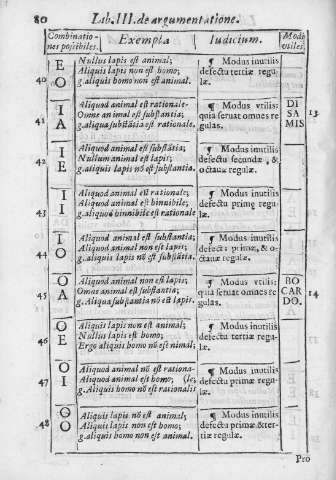 80 Lib. III. de argumentatione.
Combinationes possibiles. Exempla Iudicium. Modi vtiles.
40 E O
Nullus lapis est animal;
Aliquis lapis non est homo;
g. aliquis homo non est animal.
¶ Modus inutilis
defectu tertiæ regulæ.
41 I A
Aliquod animal est rationale.
Omne animal est substantia;
g. aliqua substãtia est rationale.
¶ Modus vtilis:
quia seruat omnes regulas.
DI SA MIS 13
42 I E
Aliquod animal est substãtia;
Nullum animal est lapis;
g. aliquis lapis nõ est substantia.
¶ Modus inutilis
defectu secundæ, &
octauæ regulæ.
43 I I
Aliquod animal est rationale;
Aliquod animal est hinnibile;
g. aliquod hinnibile est rationale
¶ Modus inutilis
defectu primę regulæ.
44 I O
Aliquod animal est substantia;
Aliquod animal non est lapis;
g. aliquis lapis nõ est substãtia.
¶ Modus inutilis
defectu primæ, & octauæ regulæ.
45 O A
Aliquod animal non est lapis;
Omne animal est substantia;
g. Aliqua substantia nõ est lapis.
¶ Modus vtilis:
quia seruat omnes regulas.
BO CAR DO. 14
46 O E
Aliquis lapis non est animal;
Nullus lapis est homo;
Ergo aliquis homo nõ est animal.
¶ Modus inutilis
defectu tertiæ regulæ.
47 O I
Aliquod animal nõ est rationa-
Aliquod animal est homo; (le;
g. Aliquis homo nõ est rationalis
¶ Modus inutilis
defectu primæ regulæ.
48 O O
Aliquis lapis nõ est animal;
Aliquis lapis non est homo;
g. aliquis homo non est animal.
¶ Modus inutilis
defectu primæ & tertiæ regulæ.
Pro